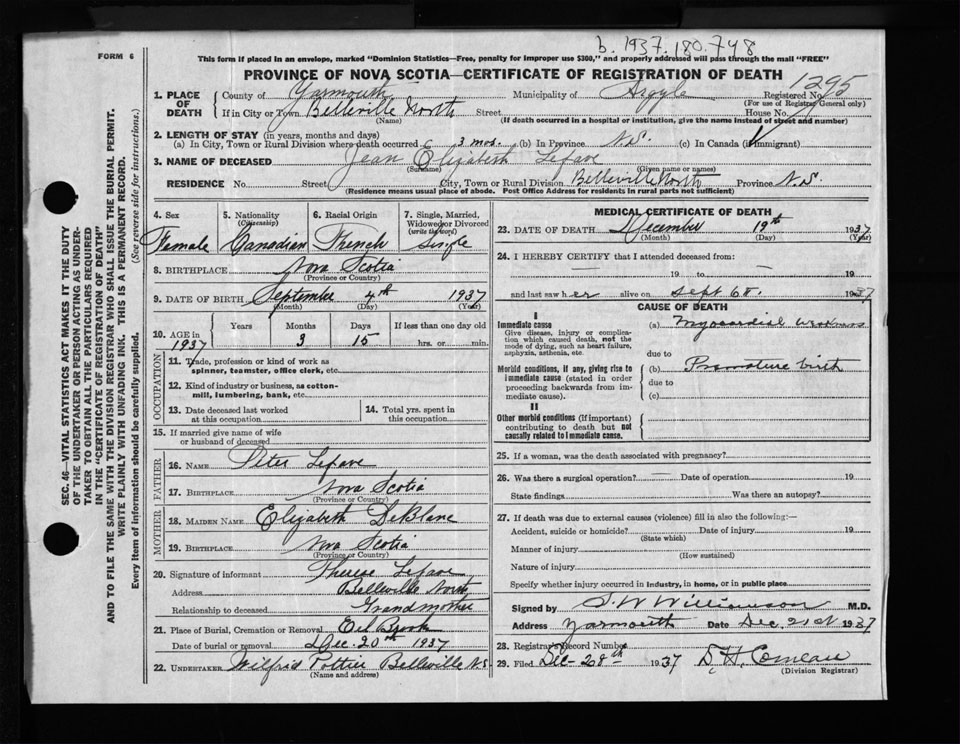 b. 1937. 180. 748
FORM 6
This form if placed in an envelope, marked "Dominion Statistics—Free, penalty for improper use $300," and properly addressed will pass through the mail "FREE"
PROVINCE OF NOVA SCOTIA—CERTIFICATE OF REGISTRATION OF DEATH
1295
1. PLACE OF DEATH County of Yarmouth Municipality of Argyle Registered No.
(For use of Registrar General only)
If in City or Town Belleville North Street House No.
(Name) (If death occurred in a hospital or institution, give the name instead of street and number)
2. LENGTH OF STAY (in years, months and days)
(a) In City, Town or Rural Division where death occurred 3 mos. (b) In Province N.S. (c) In Canada (if immigrant)
3. NAME OF DECEASED Jean Elizabeth Lefave
(Surname) (Given name or names)
RESIDENCE No. Street City, Town or Rural Division Belleville North Province N.S.
(Residence means usual place of abode. Post Office Address for residents in rural parts not sufficient)
SEC. 46—VITAL STATISTICS ACT MAKES IT THE DUTY
OF THE UNDERTAKER OR PERSON ACTING AS UNDER-
TAKER TO OBTAIN ALL THE PARTICULARS REQUIRED
IN THE "CERTIFICATE OF REGISTRATION OF DEATH"
AND TO FILE THE SAME WITH THE DIVISION REGISTRAR WHO SHALL ISSUE THE BURIAL PERMIT.
WRITE PLAINLY WITH UNFADING INK. THIS IS A PERMANENT RECORD.
Every item of information should be carefully supplied. (See reverse side for instructions.)
4. Sex 5. Nationality 6. Racial Origin 7. Single, Married,
(Citizenship) Widowed or Divorced
(write the word)
Female Canadian French Single
8. BIRTHPLACE Nova Scotia
(Province or Country)
9. DATE OF BIRTH September 4th 1937
(Month) (Day) (Year)
10. AGE in Years Months Days If less than one day old
1937 3 15 hrs. or min.
OCCUPATION
11. Trade, profession or kind of work as
spinner, teamster, office clerk, etc.
12. Kind of industry or business, as cotton-
mill, lumbering, bank, etc.
13. Date deceased last worked
at this occupation
14. Total yrs. spent in
this occupation
15. If married give name of wife
or husband of deceased
FATHER
16. NAME Peter Lefave
17. BIRTHPLACE Nova Scotia
(Province or Country)
MOTHER
18. MAIDEN NAME Elizabeth DeBlanc
19. BIRTHPLACE Nova Scotia
(Province or Country)
20. Signature of informant Therese Lefave
Address Belleville North
Relationship to deceased Grandmother
21. Place of Burial, Cremation or Removal Eel Brook
Date of burial or removal Dec. 20th 1937
22. UNDERTAKER Wilfrid Pottier Belleville N.S
(Name and address)
MEDICAL CERTIFICATE OF DEATH
23. DATE OF DEATH December 19th 1937
(Month) (Day) (Year)
24. I HEREBY CERTIFY that I attended deceased from:
19 to 19
and last saw her alive on Sept 6th. 1937
CAUSE OF DEATH
I
Immediate cause
Give disease, injury or complica-
tion which caused death, not the
mode of dying, such as heart failure,
asphyxia, asthenia, etc.
(a) Myocardial weakness
due to
Morbid conditions, if any, giving rise to
immediate cause (stated in order
proceeding backwards from im-
mediate cause).
(b) Premature birth
due to
(c)
II
Other morbid conditions (if important)
contributing to death but not
causally related to immediate cause.
25. If a woman, was the death associated with pregnancy?
26. Was there a surgical operation? Date of operation 19
State findings Was there an autopsy?
27. If death was due to external causes (violence) fill in also the following:—
Accident, suicide or homicide? Date of injury 19
(State which)
Manner of injury
(How sustained)
Nature of injury
Specify whether injury occurred in industry, in home, or in public place
Signed by S. W. Williamson M.D.
Address Yarmouth Date Dec. 21st 1937
28. Registrar's Record Number
29. Filed Dec-28th 1937 D. H. Comeau
(Division Registrar)